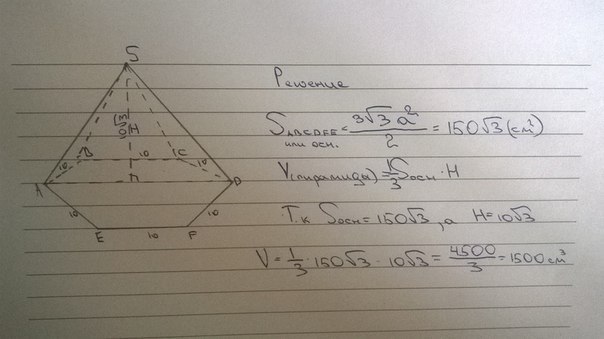 S
10√3
H
B
10
C
10
10
A
D
10
10
E
10
F
Решение
S ABCDEF = 3√3 a² / 2 = 150√3 (см²)
или осн.
V(пирамиды) = 1/3 Sосн · H
Т.к Sосн = 150√3, а H = 10√3
V = 1/3 · 150√3 · 10√3 = 4500/3 = 1500 см³